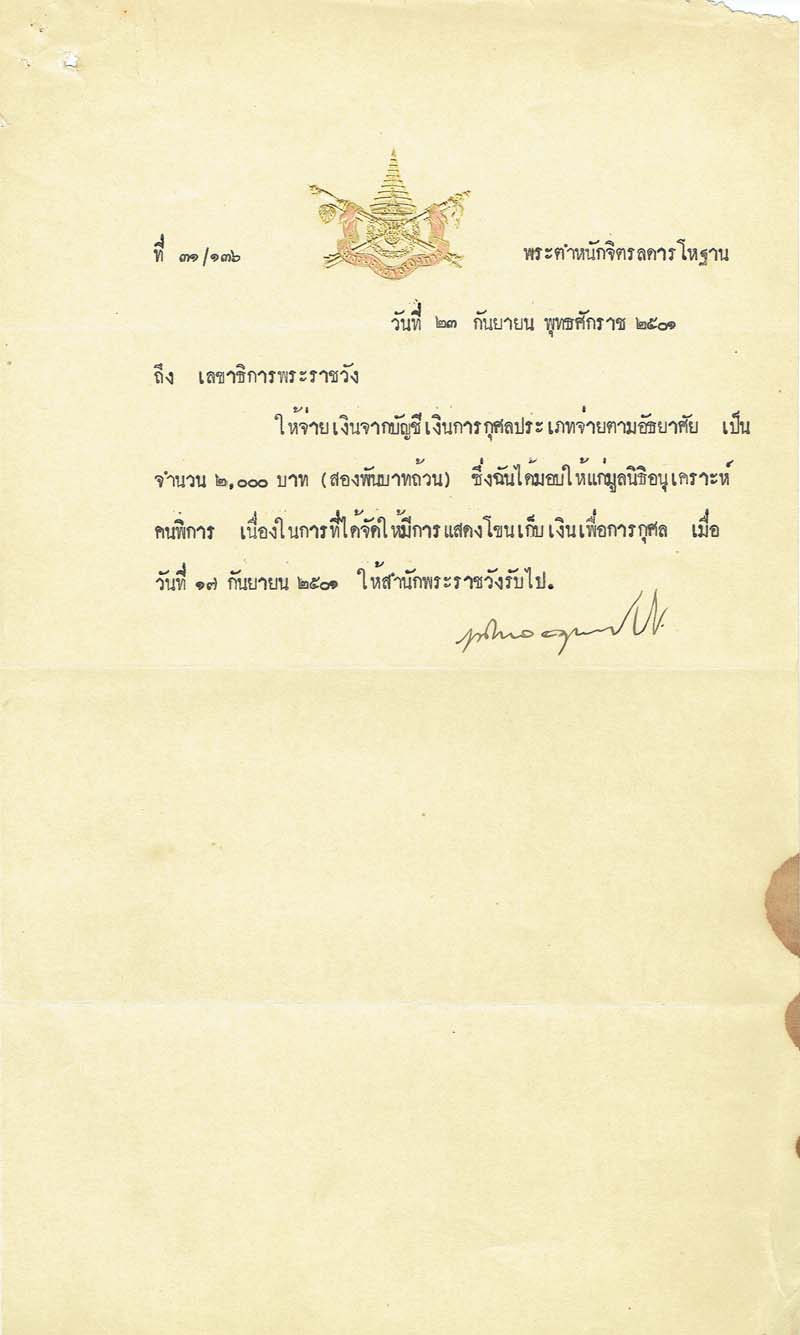 ที่ ๓๑/๑๓๖
พระตำหนักจิตรลดารโหฐาน
วันที่ ๒๓ กันยายน พุทธศักราช ๒๕๐๑
ถึง เลขาธิการพระราชวัง
ให้จ่ายเงินจากบัญชีเงินการกุศลประเภทจ่ายตามอัธยาศัย เป็น
จำนวน ๒,๐๐๐ บาท (สองพันบาทถ้วน) ซึ่งฉันได้มอบให้แก่มูลนิธิอนุเคราะห์
คนพิการ เนื่องในการที่ได้จัดให้มีการแสดงโขนเก็บเงินเพื่อการกุศล เมื่อ
วันที่ ๑๗ กันยายน ๒๕๐๑ ให้สำนักพระราชวังรับไป.